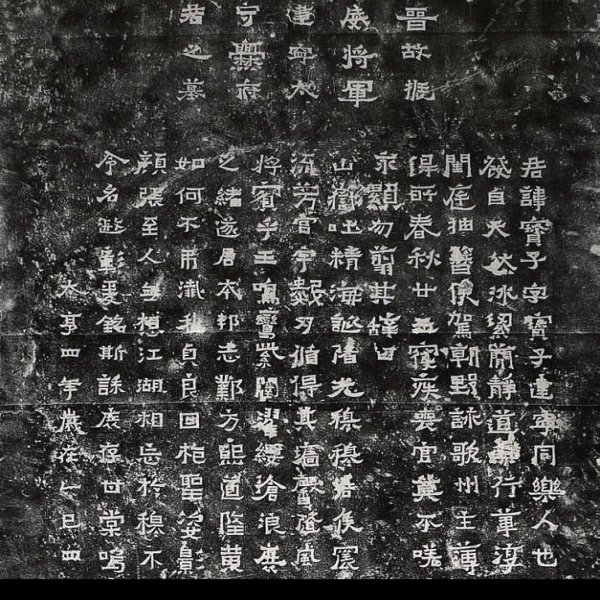 晉故振
威將軍
建寧太
守爨府
君之墓
君諱寶子字寶子建寧同樂人也
發自天然冰潔簡靜道兼行葦淳
閨庭抽簪俟駕朝野詠歌州主簿
得所春秋廿五寢疾喪官莫不嗟
永顯勿翦其辭曰
山嶽吐精海誕陼光穆穆君侯震
流芳宮宇數仞循得其墻馨隨風
將賓乎王鳴鸞紫闥濯纓滄浪庶
之緒遂居本邦志鄴方熙道隆黃
如何不弔殲我貞良回抱聖姿影
顏張至人無想江湖相忘於穆不
令名遐彰爰銘斯誄庶存甘棠嗚
太亨四年歲在乙巳四